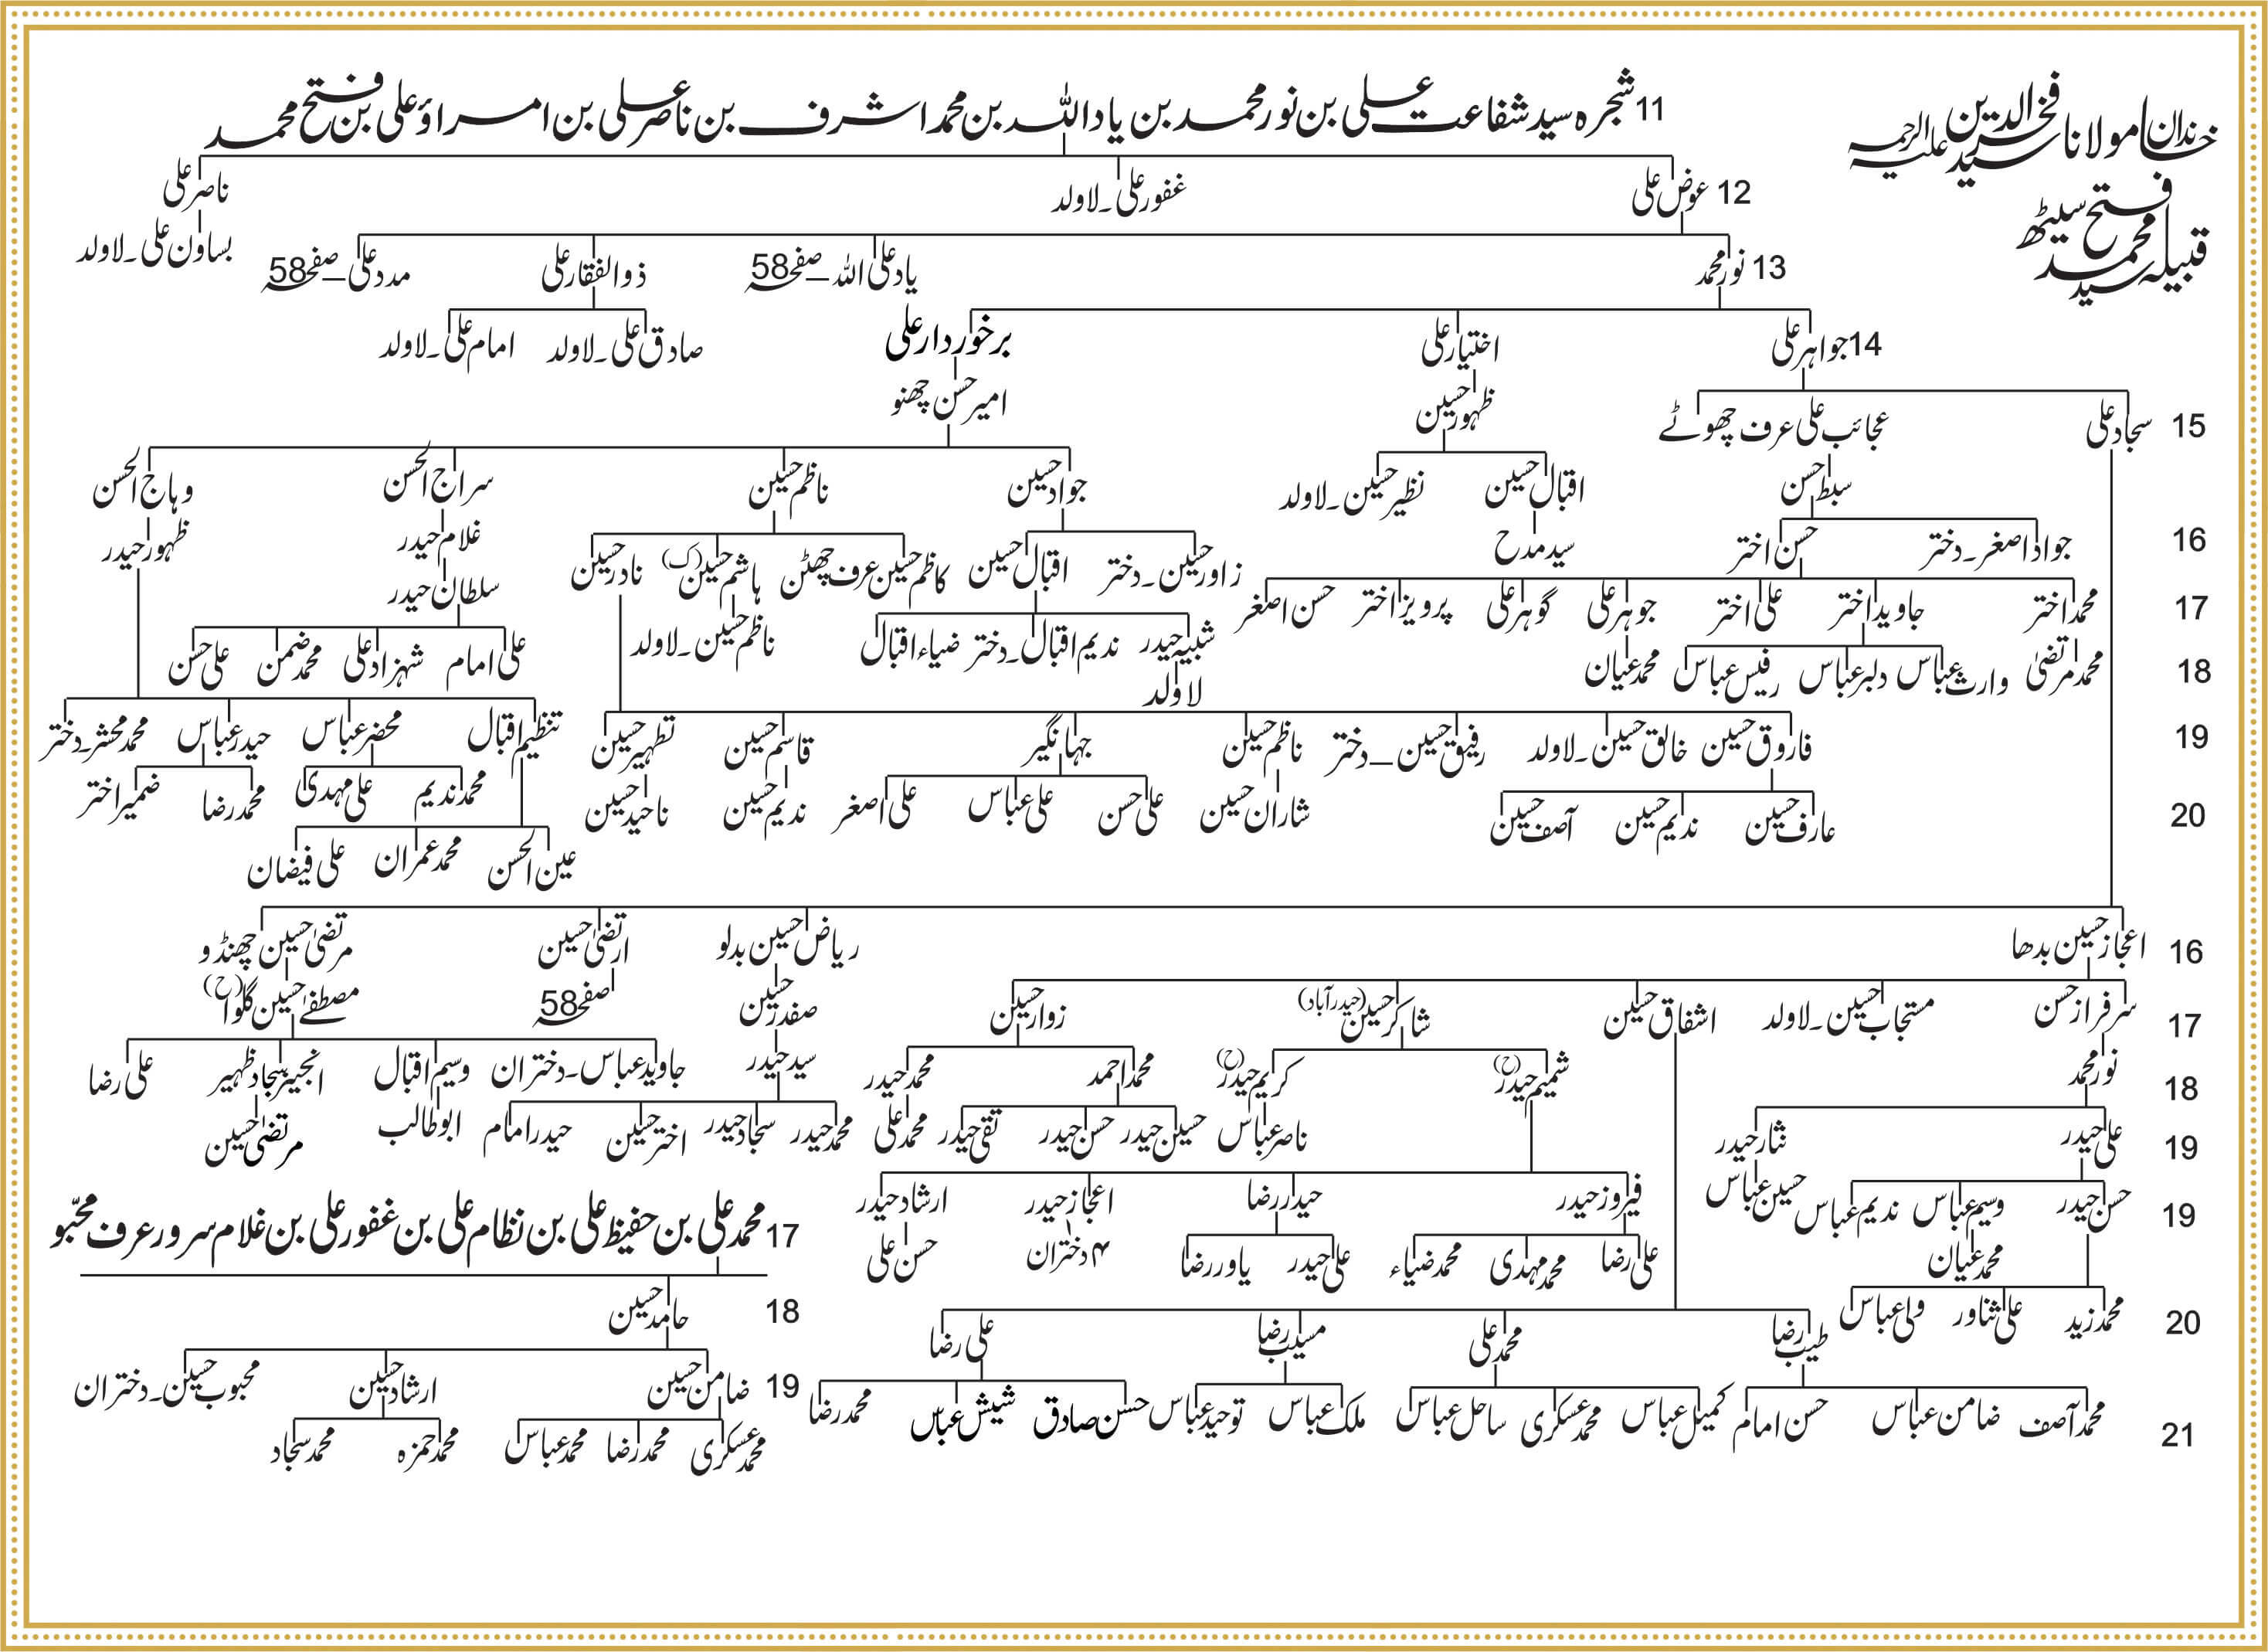 خاندان مولانا سید فخرالدین علیہ الرحمہ
قبیلہ سید فتح محمد سیٹھ
11 شجرہ سید شفاعت علی بن نور محمد بن یاد اللہ بن محمد اشرف بن ناصر علی بن امراؤ علی بن فتح محمد
12 عوض علی غفور علی۔لاولد ناصر علی
بساون علی۔لاولد
13 نور محمد یاد علی اللہ_صفحہ58 ذوالفقار علی مدد علی_صفحہ58
14 جواہر علی اختیار علی برخوردار علی صادق علی۔لاولد امام علی۔لاولد
15 سجاد علی عجائب علی عرف چھوٹے ظہور حسین امیر حسن چھنو
سبط حسن اقبال حسین نظیر حسین۔لاولد جواد حسین ناظم حسین سراج الحسن وہاج الحسن
16 جواد اصغر۔دختر حسن اختر سید مدح زاور حسین۔دختر اقبال حسین کاظم حسین عرف چھٹن ہاشم حسین (ک) نادر حسین غلام حیدر ظہور حیدر
سلطان حیدر
17 محمد اختر جاوید اختر علی اختر جوہر علی گوہر علی پرویز اختر حسن اصغر شبیہ حیدر ندیم اقبال۔دختر ضیاء اقبال ناظم حسین۔لاولد
لاولد
18 محمد مرتضیٰ وارث عباس دلبر عباس رفیس عباس محمد عیان علی امام شہزاد علی محمد ضمن علی حسن
19 فاروق حسین خالق حسین۔لاولد رفیق حسین_دختر ناظم حسین جہانگیر قاسم حسین تطہیر حسین تنظیم اقبال محضر عباس حیدر عباس محمد محشر۔دختر
20 عارف حسین ندیم حسین آصف حسین شاران حسین علی حسن علی عباس علی اصغر ندیم حسین ناحید حسین محمد ندیم علی مہدی محمد رضا ضمیر اختر
عین الحسن محمد عمران علی فیضان
16 اعجاز حسین بدھا ریاض حسین بدلو ارتضیٰ حسین مرتضیٰ حسین چھنڈو
صفحہ58
17 سرفراز حسن مستجاب حسین۔لاولد اشفاق حسین شاکر حسین (حیدرآباد) زوار حسین صفدر حسین مصطفےٰ حسین گلوا (ح)
18 نور محمد شمیم حیدر (ح) کریم حیدر (ح) محمد احمد محمد حیدر سید حیدر جاوید عباس۔دختران وسیم اقبال انجینر سجاد ظہیر علی رضا
19 علی حیدر نثار حیدر ناصر عباس حسین حیدر حسن حیدر تقی حیدر محمد علی محمد حیدر سجاد حیدر اختر حسین حیدر امام ابوطالب مرتضیٰ حسین
19 حسن حیدر وسیم عباس ندیم عباس حسین عباس فیروز حیدر حیدر رضا اعجاز حیدر ارشاد حیدر
محمد عیان علی رضا محمد مہدی محمد ضیاء علی حیدر یاور رضا ۴ دختران حسن علی
20 محمد زید علی شناور ولی عباس طیب رضا محمد علی مسیب رضا علی رضا
21 محمد آصف ضامن عباس حسن امام کمیل عباس محمد عسکری ساحل عباس ملک عباس توحید عباس حسن صادق شیش عباس محمد رضا
17 محمد علی بن حفیظ علی بن نظام علی بن غفور علی بن غلام سرور عرف محبّو
18 حامد حسین
19 ضامن حسین ارشاد حسین محبوب حسین۔دختران
محمد عسکری محمد رضا محمد عباس محمد حمزہ محمد سجاد